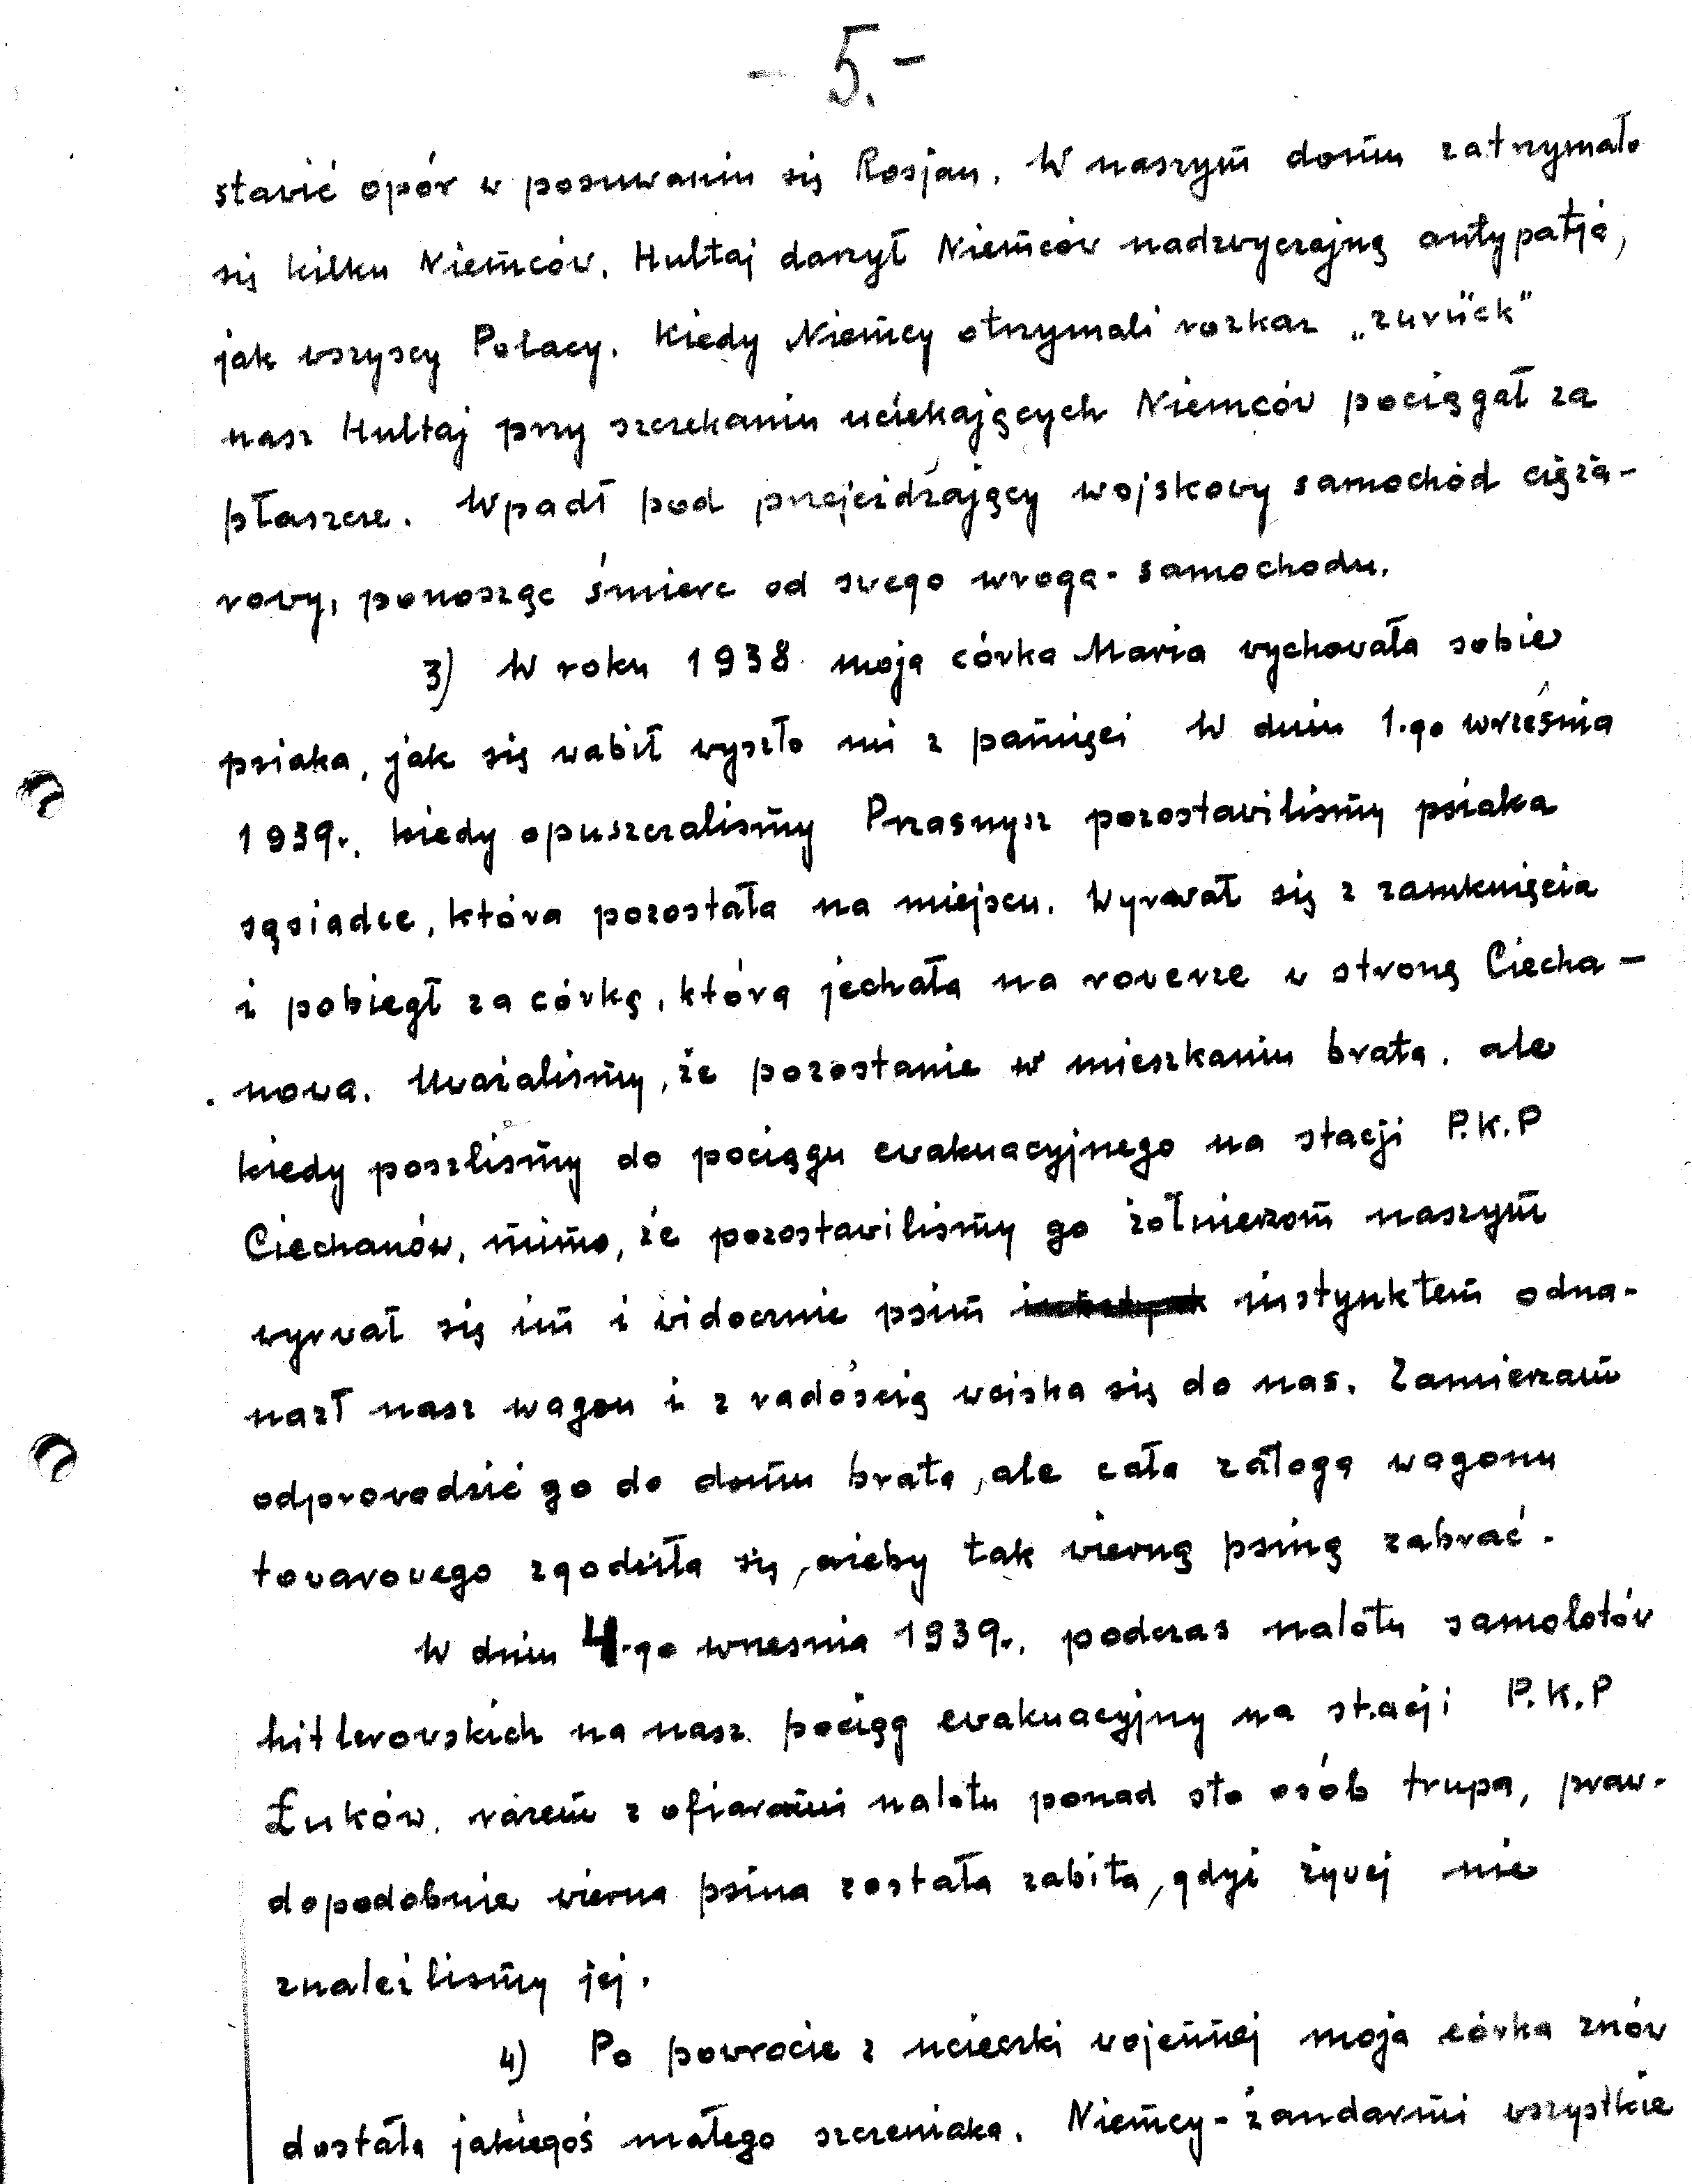 - 5. -
stavić opór w posuwaniu się Rosjan. W naszym domu zatrzymało
się kilku Niemców. Hultaj darzył Niemców nadzwyczajną antypatją,
jak wszyscy Polacy. Kiedy Niemcy otrzymali rozkaz „zurück"
nasz Hultaj przy szczekaniu uciekających Niemców pociągał za
płaszcze. Wpadł pod przejeżdżający wojskowy samochód cięża-
rowy, ponosząc śmierc od swego wroga - samochodu.
3) W roku 1938 moja córka Maria wychowała sobie
psiaka, jak się wabił wyszło mi z pamięci W dniu 1.go wrześnią
1939r. kiedy opuszczalismy Przasnysz pozostawilismy psiaka
sąsiadce, która pozostała na miejscu. Wyrwał się z zamknięcia
i pobiegł za córką, która jechała na rowerze w stronę Ciecha-
nowa. Uważalismy, że pozostanie w mieszkaniu brata, ale
kiedy poszlismy do pociągu ewakuacyjnego na stacji P.K.P
Ciechanów, mimo, że pozostawilismy go żołnierzom naszym
wyrwał się im i widocznie psim instynktem odna-
nazł nasz wagon i z radością wciska się do nas. Zamierzam
odprowadzić go do domu brata, ale cała załoga wagonu
towarowego zgodziła się, ażeby tak wierną psinę zabrać.
W dniu 4.go wrzesnia 1939r. podczas nalotu samolotów
hitlerowskich na nasz pociąg ewakuacyjny na stacji P.K.P
Łuków, razem z ofiarami nalotu ponad sto osób trupa, praw-
dopodobnie wierna psina została zabita, gdyż żywej nie
znalezlismy jej.
4) Po powrocie z ucieczki wojennej moja córka znów
dostała jakiegoś małego szczeniaka. Niemcy - żandarmi wszystkie